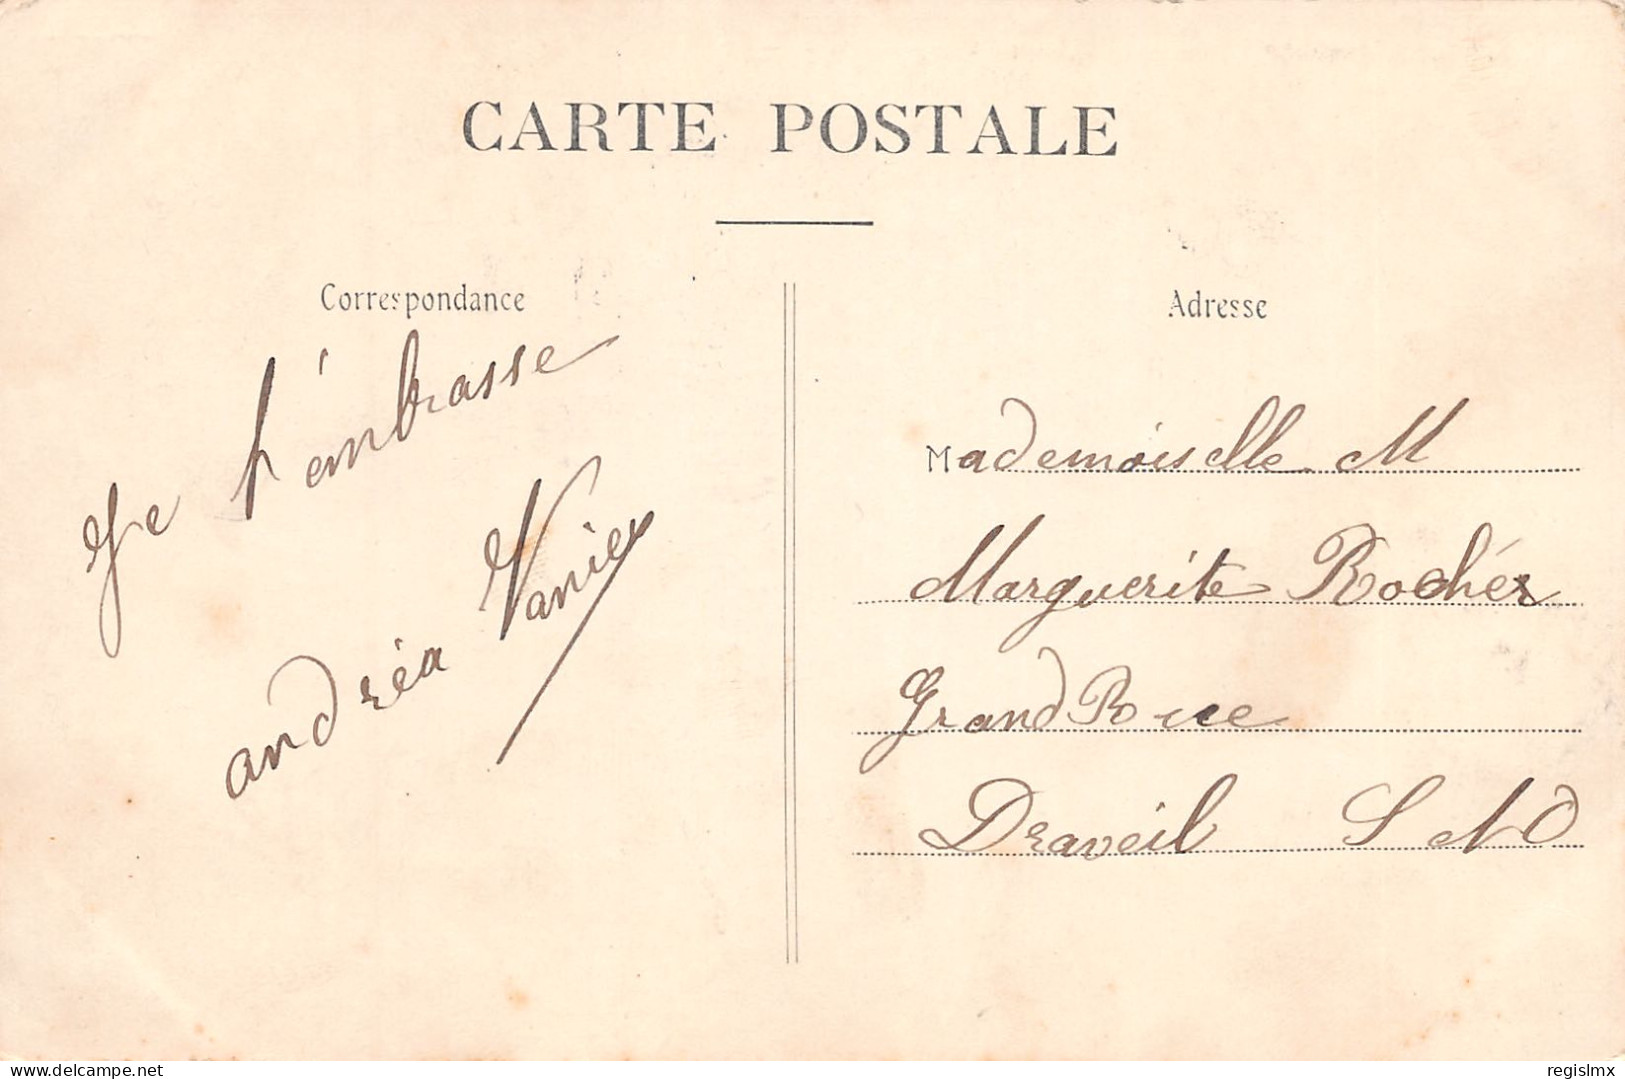 CARTE POSTALE
Correspondance
Je t'embrasse
andréa Vanier
Adresse
Mademoiselle M
Marguerite Rochér
Grand Rue
Draveil S &O
delcampe.net
regislmx